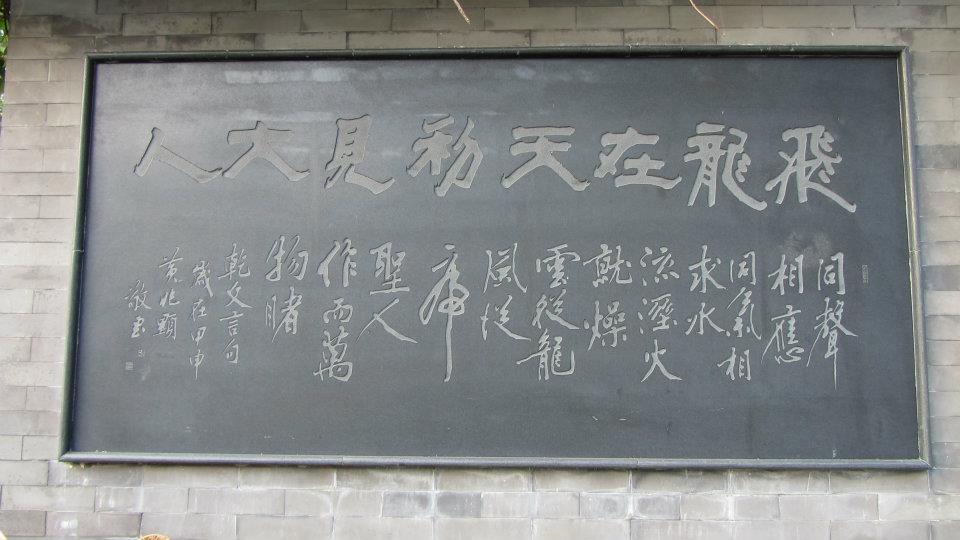 飛龍在天利見大人
同聲
相應
同氣相
求水
流溼火
就燥
雲從龍
風從
虎
聖人
作而萬
物睹
乾文言句
歲在甲申
黃兆顯
敬書